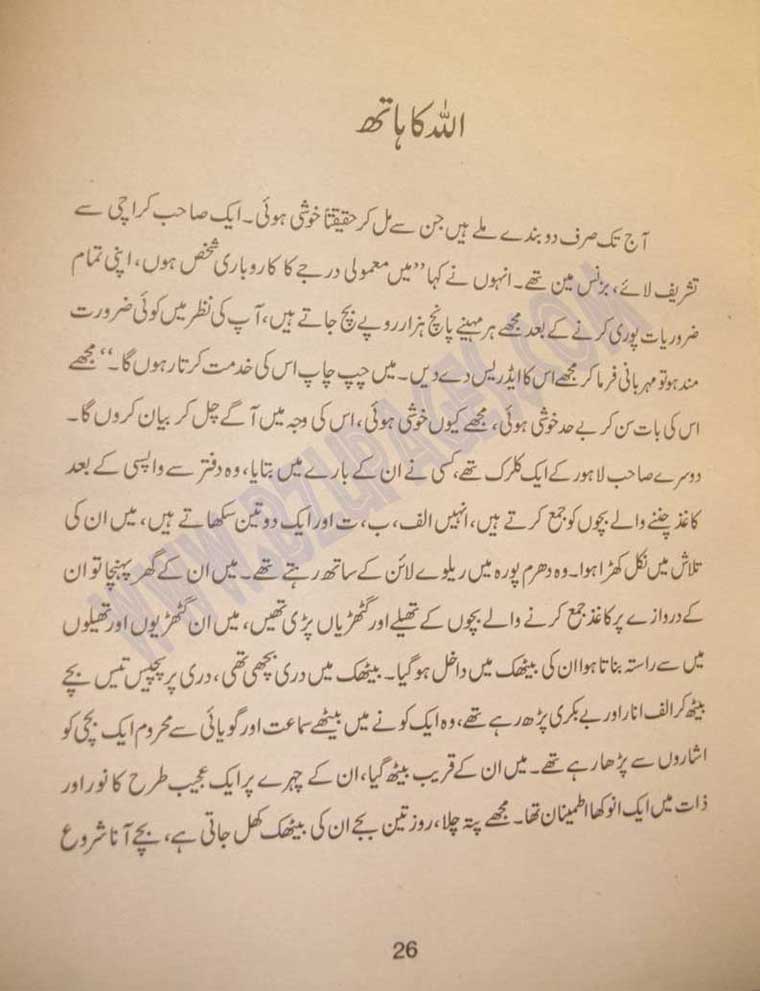 اللہ کا ہاتھ
آج تک صرف دو بندے ملے ہیں جن سے مل کر حقیقتاً خوشی ہوئی۔ ایک صاحب کراچی سے
تشریف لائے، بزنس مین تھے۔ انہوں نے کہا ”میں معمولی درجے کا کاروباری شخص ہوں، اپنی تمام
ضروریات پوری کرنے کے بعد مجھے ہر مہینے پانچ ہزار روپے بچ جاتے ہیں، آپ کی نظر میں کوئی ضرورت
مند ہو تو مہربانی فرما کر مجھے اس کا ایڈریس دے دیں۔ میں چپ چاپ اس کی خدمت کرتا رہوں گا۔“ مجھے
اس کی بات سن کر بے حد خوشی ہوئی، مجھے کیوں خوشی ہوئی، اس کی وجہ میں آگے چل کر بیان کروں گا۔
دوسرے صاحب لاہور کے ایک کلرک تھے، کسی نے ان کے بارے میں بتایا، وہ دفتر سے واپسی کے بعد
کاغذ چننے والے بچوں کو جمع کرتے ہیں، انہیں الف، ب، ت اور ایک دو تین سکھاتے ہیں، میں ان کی
تلاش میں نکل کھڑا ہوا۔ وہ دھرم پورہ میں ریلوے لائن کے ساتھ رہتے تھے۔ میں ان کے گھر پہنچا تو ان
کے دروازے پر کاغذ جمع کرنے والے بچوں کے تھیلے اور گٹھڑیاں پڑی تھیں، میں ان گٹھڑیوں اور تھیلوں
میں سے راستہ بناتا ہوا ان کی بیٹھک میں داخل ہو گیا۔ بیٹھک میں دری بچھی تھی، دری پر پچیس تیس بچے
بیٹھ کر الف انار اور بے بکری پڑھ رہے تھے، وہ ایک کونے میں بیٹھے سماعت اور گویائی سے محروم ایک بچی کو
اشاروں سے پڑھا رہے تھے۔ میں ان کے قریب بیٹھ گیا، ان کے چہرے پر ایک عجیب طرح کا نور اور
ذات میں ایک انوکھا اطمینان تھا۔ مجھے پتہ چلا، روز تین بجے ان کی بیٹھک کھل جاتی ہے، بچے آنا شروع
26